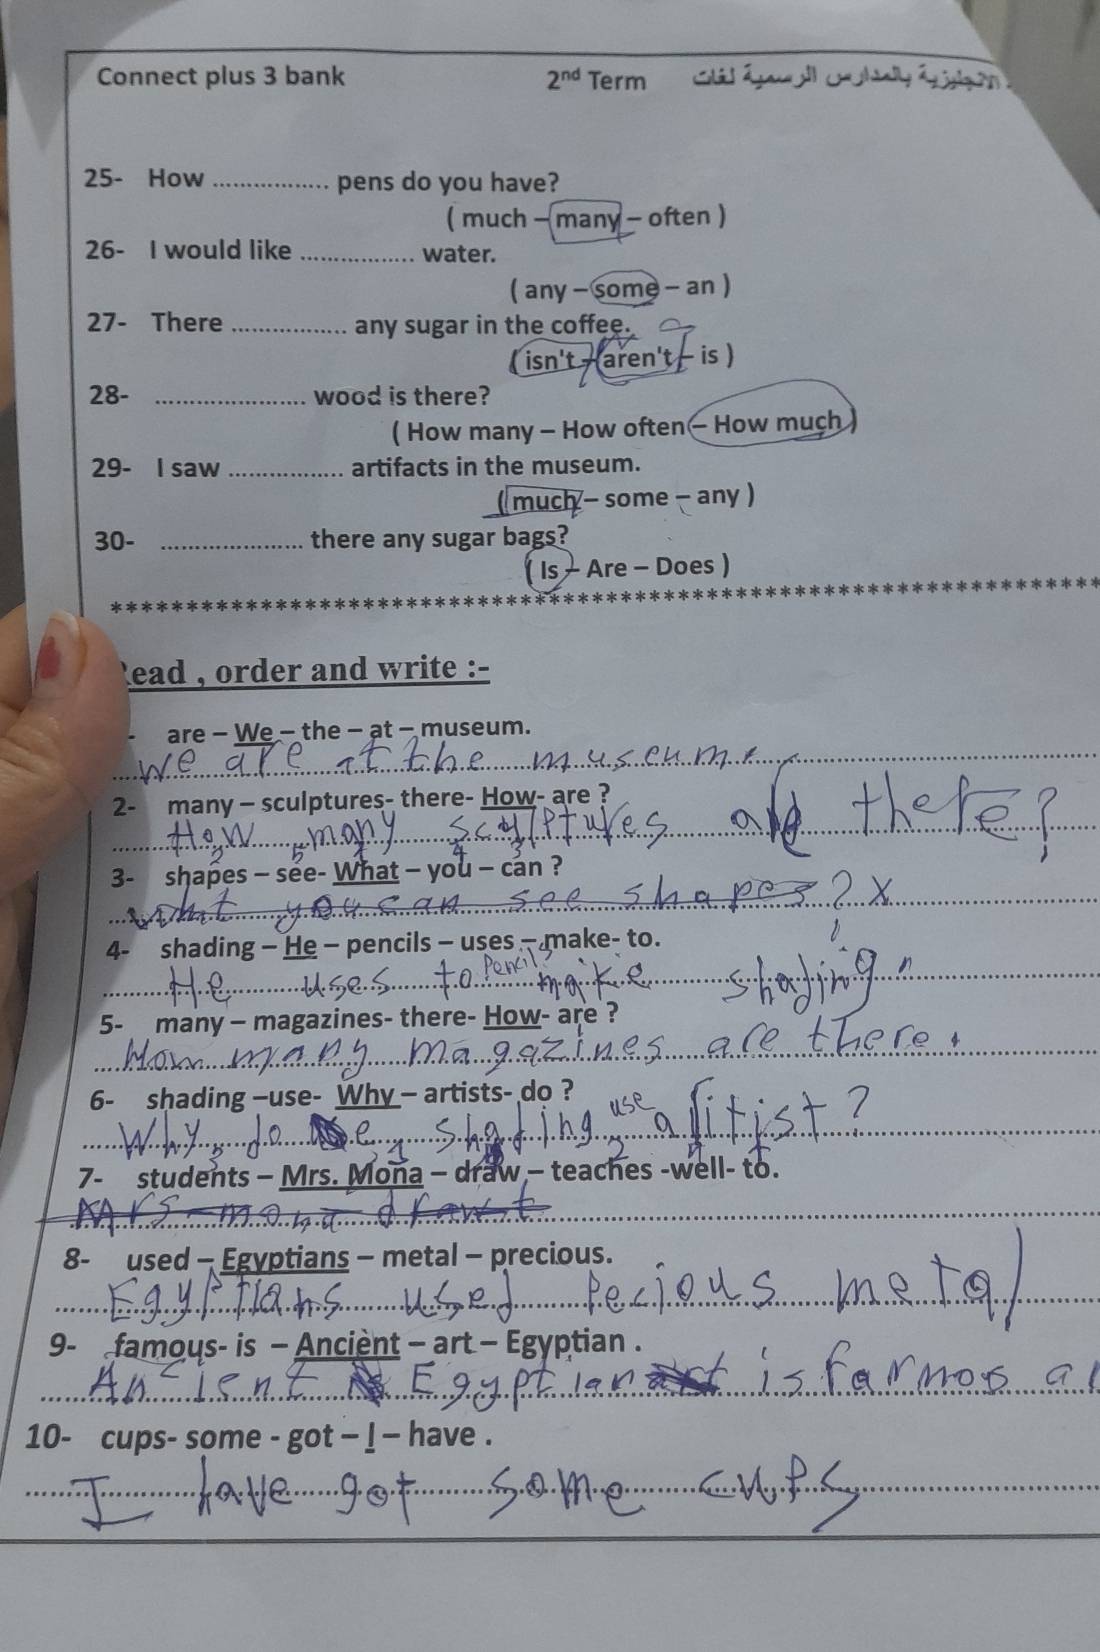 Connect plus 3 bank 2nd Term الانجليزية بالمدارس الرسمية لغات
25- How .................. pens do you have?
( much – many – often )
26- I would like ................. water.
( any – some – an )
27- There ................. any sugar in the coffee.
( isn't – aren't – is )
28- ...................... wood is there?
( How many – How often – How much )
29- I saw ................. artifacts in the museum.
( much – some – any )
30- ..................... there any sugar bags?
( Is – Are – Does )
************************************************************
ead , order and write :-
- are – We – the – at – museum.
We are at the museum.
2- many – sculptures- there- How- are ?
How many sculptures are there?
2 5 1 4 3
3- shapes – see- What – you – can ?
what you can see shapes? x
4- shading – He – pencils – uses – make- to.
He uses to pencils make shading
5- many – magazines- there- How- are ?
How many magazines are there.
6- shading –use- Why – artists- do ?
Why do shading use artist?
7- students – Mrs. Mona – draw – teaches -well- to.
Mrs mona drawt
8- used – Egyptians – metal – precious.
Egyptians used Pecious metal
9- famous- is – Ancient – art – Egyptian .
Ancient Egyptian art is farmos ar
10- cups- some - got – I – have .
I have got some cups